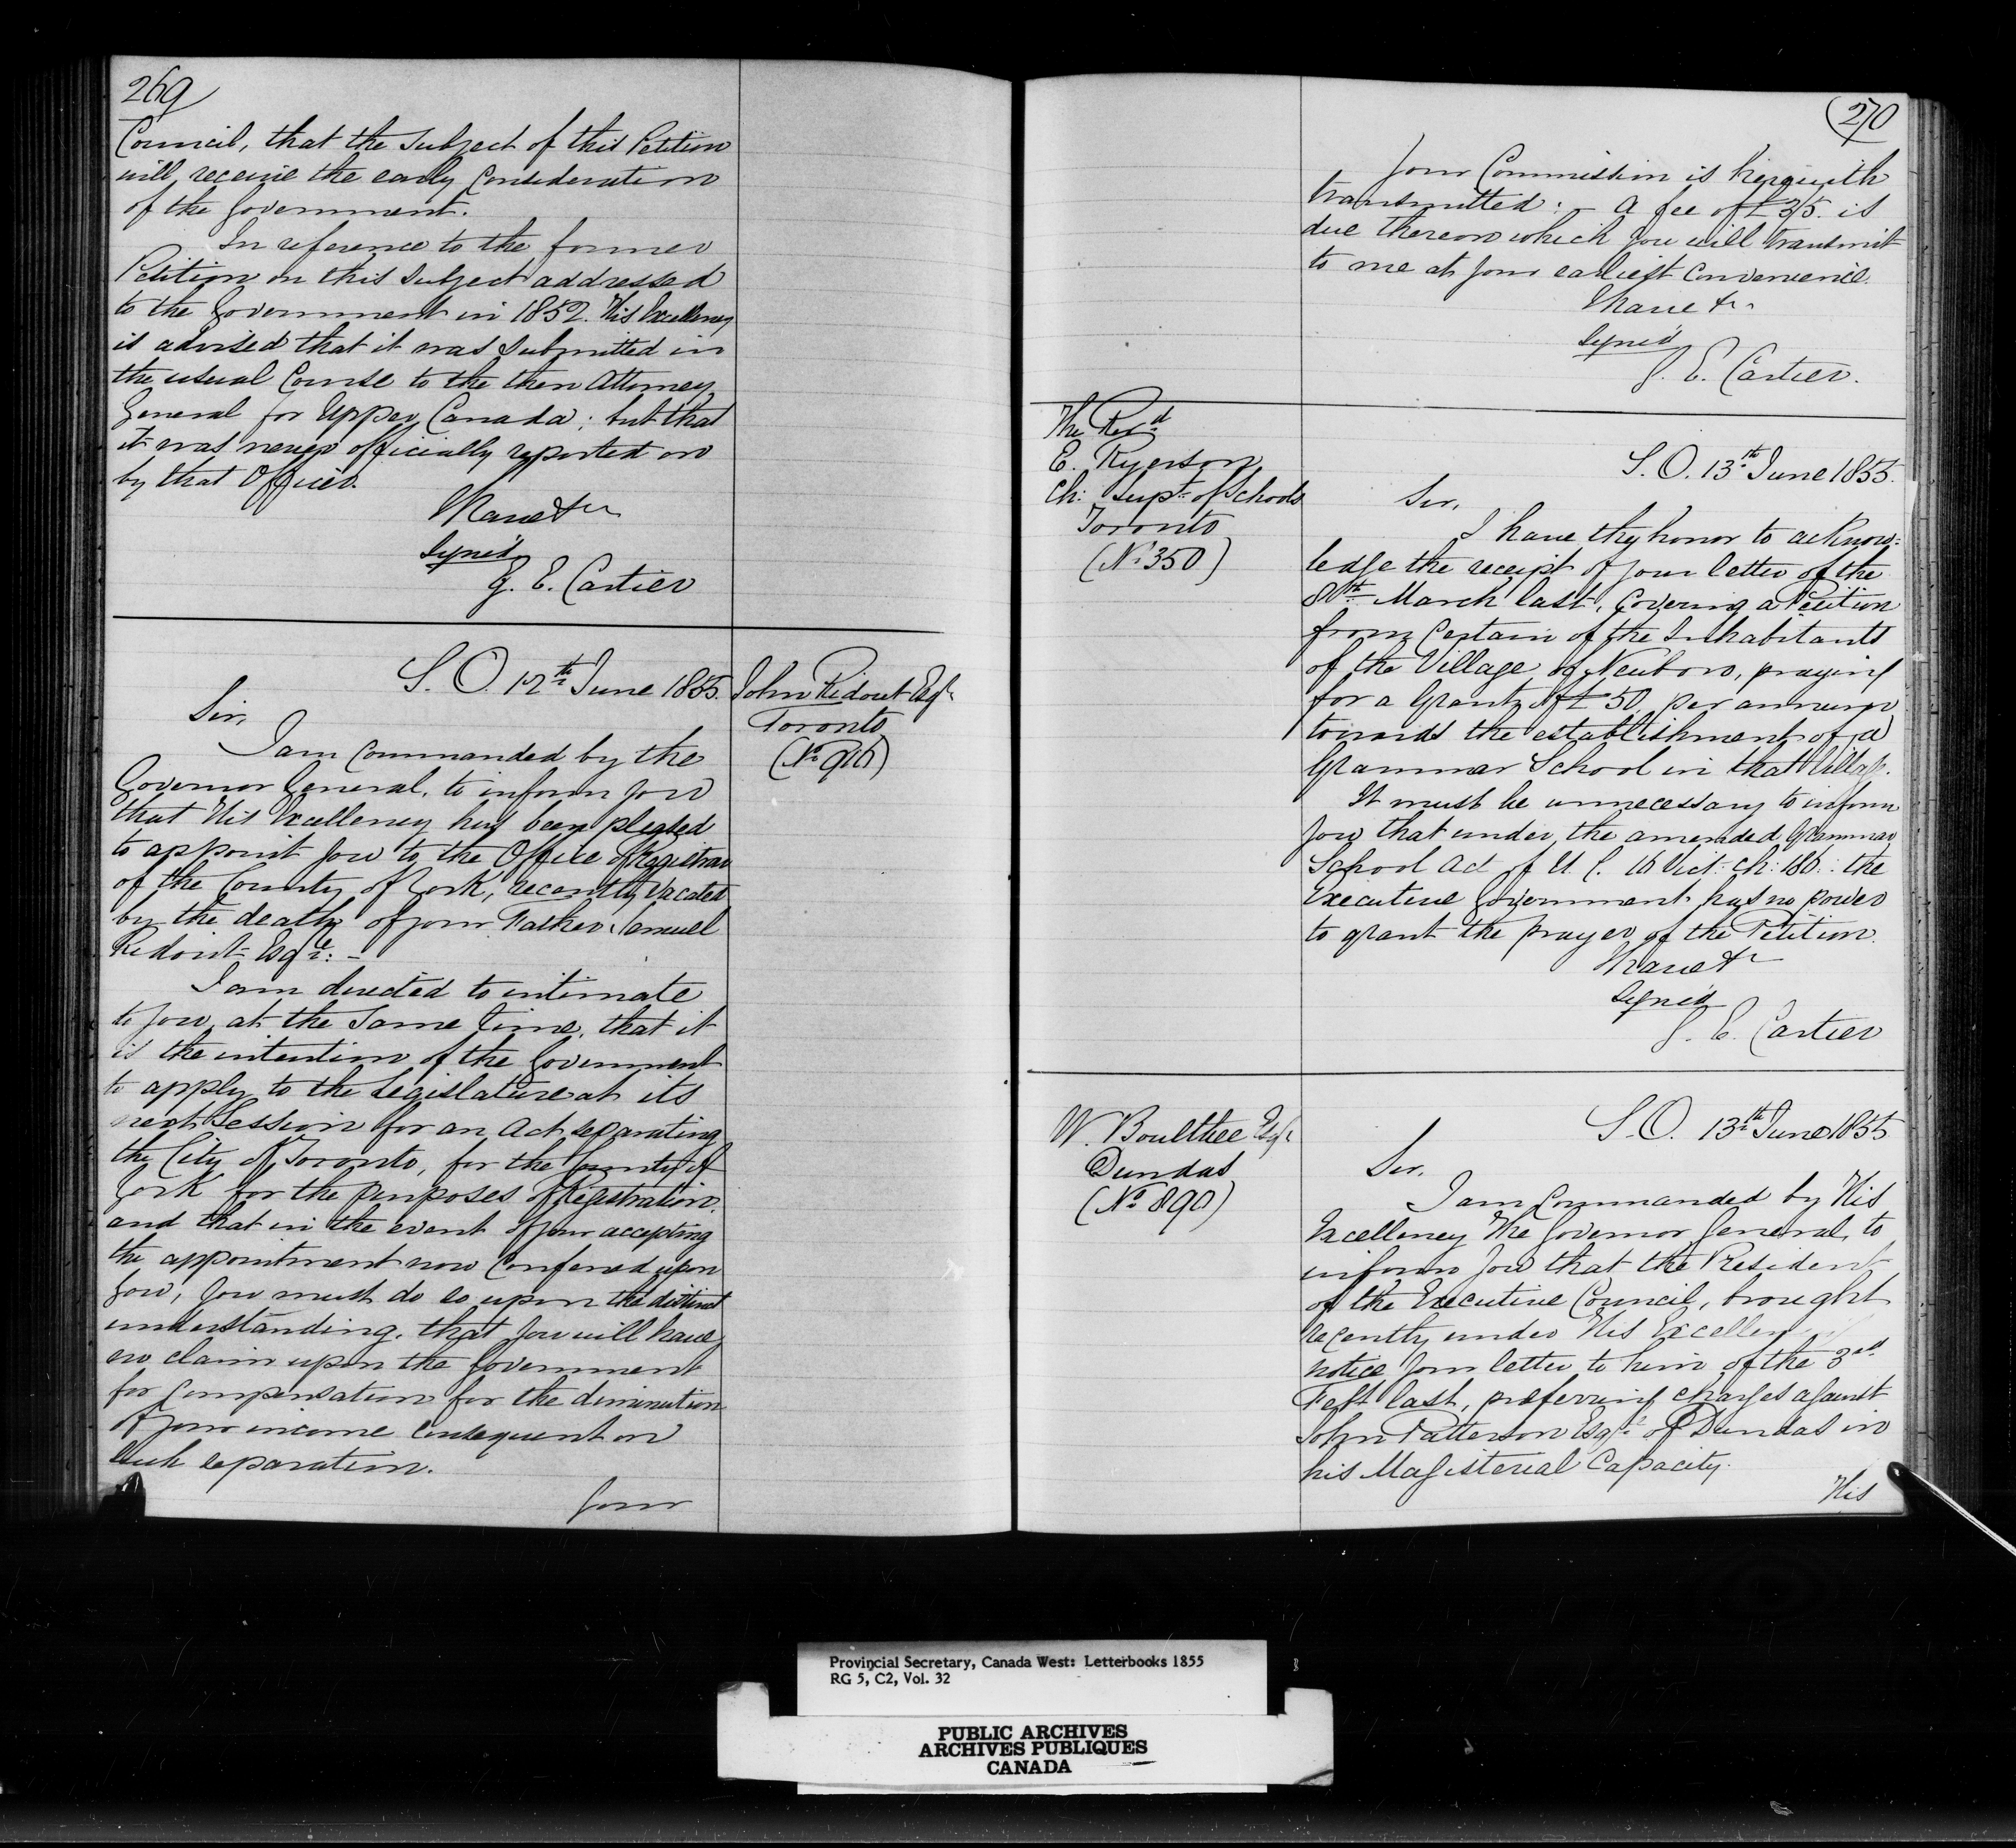 269
Council, that the subject of this Petition
will receive the early Consideration
of the Government.
In reference to the former
Petition on this subject addressed
to the Government in 1852. His Excellency
is advised that it was submitted in
the usual Course to the then Attorney
General for Upper Canada; but that
it was never officially reported on
by that Officer.
I have &c
Signed
G. E. Cartier
S. O. 12th June 1855.
John Ridout Esqr
Toronto
Sir,
I am Commanded by the
Governor General, to inform you
that His Excellency has been pleased
to appoint you to the Office of Registrar
of the County of York, recently vacated
by the death of your Father, Samuel
Ridout Esqre: -
I am directed to intimate
to you, at the same time, that it
is the intention of the Government
to apply to the Legislature at its
next Session for an Act separating
the City of Toronto, for the County of
York for the purposes of Registration,
and that in the event of your accepting
the appointment now Conferred upon
you, you must do so upon the distinct
understanding, that you will have
no claim upon the Government
for Compensation for the diminution
of your income Consequent on
such separation.
Your
270
Your Commission is herewith
transmitted: - A fee of £3/5. is
due thereon which you will transmit
to me at your earliest Convenience.
I have &c
Signed
G. E. Cartier.
The Revd
E. Ryerson
Ch: Supt of Schools
Toronto
(No 350)
S. O. 13th June 1855.
Sir,
I have the honor to acknow=
ledge the receipt of your letter of the
8th March last, Covering a Petition
from Certain of the Inhabitants
of the Village of Newboro, praying
for a Grant of £50, per annum
towards the establishment of a
Grammar School in that Village.
It must be unnecessary to inform
you that under the amended Grammar
School Act of U. C. 16 Vict: Ch: 186: the
Executive Government has no power
to grant the prayer of the Petition.
I have &c
Signed
G. E. Cartier
W. Boultbee Esqr
Dundas
(No 890)
S. O. 13th June 1855
Sir,
I am Commanded by His
Excellency The Governor General, to
inform you that the President
of the Executive Council, brought
recently under His Excellen
notice your letter to him of the 3rd
Feby last, preferring charges against
John Patterson Esqre of Dundas in
his Magisterial Capacity.
His
Provincial Secretary, Canada West: Letterbooks 1855
RG 5, C2, Vol. 32
PUBLIC ARCHIVES
ARCHIVES PUBLIQUES
CANADA